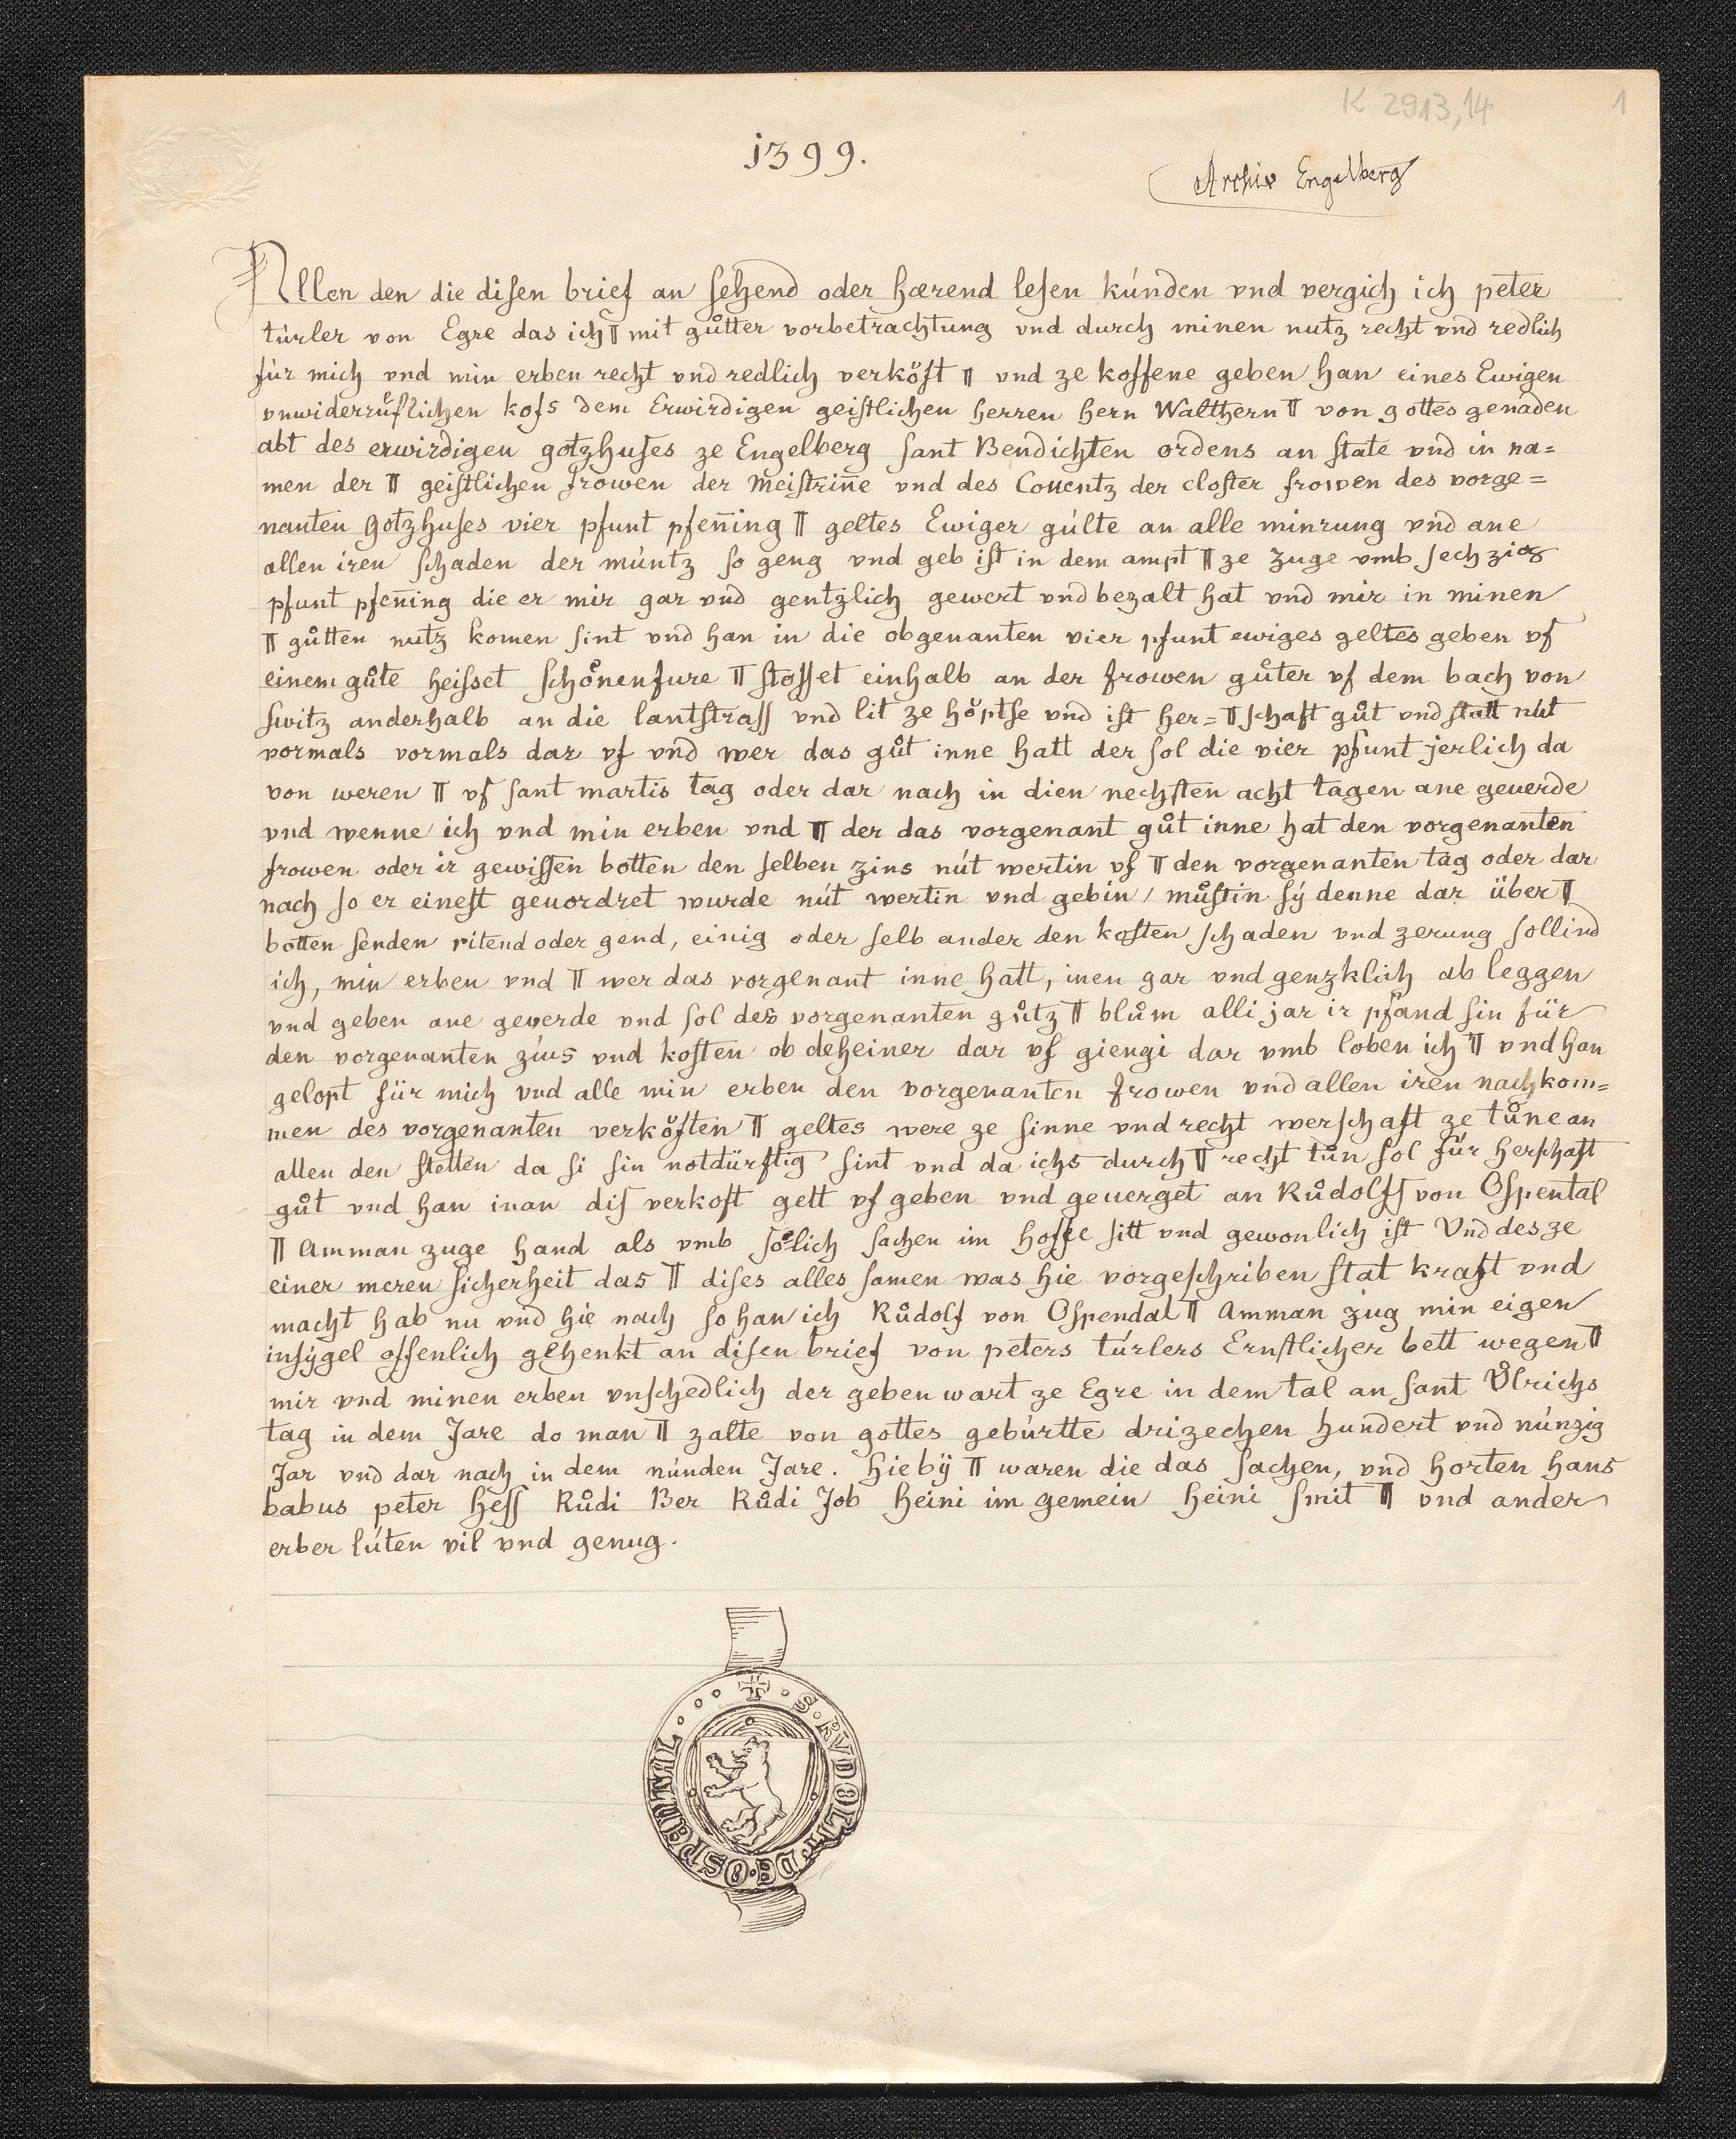 K 2913,14
1
1399.
Archiv Engelberg
Allen den die disen brief an sehend oder hœrend lesen kúnden vnd vergich ich peter
túrler von Egre das ich ¶ mit gůtter vorbetrachtung vnd durch minen nutz recht vnd redlich
für mich vnd min erben recht vnd redlich verkőft ¶ vnd ze koffene geben han eines Ewigen
vnwiderrůflichen kofs dem Erwirdigen geistlichen herren hern Walthern ¶ von gottes genaden
abt des erwirdigen gotzhuses ze Engelberg sant Bendichten ordens an state vnd in na=
men der ¶ geistlichen frowen der meistrin̄e vnd des Couentz der closter frowen des vorge=
nanten gotzhuses vier pfunt pfen̄ing ¶ geltes Ewiger gúlte an alle minrung vnd ane
allen iren schaden der múntz so geng vnd geb ist in dem ampt ¶ ze zuge vmb sechzig
pfunt pfen̄ing die er mir gar vnd gentzlich gewert vnd bezalt hat vnd mir in minen
¶ gůtten nutz komen sint vnd han in die obgenanten vier pfunt ewiges geltes geben vf
einem gůte heisset schőnenfure ¶ stosset einhalb an der frowen gůter vf dem bach von
switz anderhalb an die lantstrass vnd lit ze hőptse vnd ist her=¶schaft gůt vnd statt nút
vormals vormals dar vf vnd wer das gůt inne hatt der sol die vier pfunt jerlich da
von weren ¶ vf sant martis tag oder dar nach in dien nechsten acht tagen ane geuerde
vnd wenne ich vnd min erben vnd ¶ der das vorgenant gůt inne hat den vorgenanten
frowen oder ir gewissen botten den selben zins nút wertin vf ¶ den vorgenanten tag oder dar
nach so er einest geuordret wurde nút wertin vnd gebin / můstin sý denne dar über ¶
botten senden ritend oder gend, einig oder selb ander den kosten schaden vnd zerung sollind
ich, min erben vnd ¶ wer das vorgenant inne hatt, inen gar vnd genzklich ab leggen
vnd geben ane geverde vnd sol des vorgenanten gůtz ¶ blům alli jar ir pfand sin für
den vorgenanten zins vnd kosten ob deheiner dar vf giengi dar vmb loben ich ¶ vnd han
gelopt für mich vnd alle min erben den vorgenanten frowen vnd allen iren nachkom=
men des vorgenanten verkőften ¶ geltes were ze sinne vnd recht werschaft ze tůne an
allen den stetten da si sin notdürftig sint vnd da ichs durch ¶ recht tůn sol für herschaft
gůt vnd han inan dis verkoft gelt vf geben vnd geuerget an Růdolfs von Ospental
¶ Amman zuge hand als vmb sőlich sachen im hoffe sitt vnd gewonlich ist Vnd des ze
einer meren sicherheit das ¶ dises alles samen was hie vorgeschriben stat kraft vnd
macht hab nu vnd hie nach so han ich Růdolf von Ospendal ¶ Amman zug min eigen
insýgel offenlich gehenkt an disen brief von peters túrlers Ernstlicher bett wegen ¶
mir vnd minen erben vnschedlich der geben wart ze Egre in dem tal an sant Ůlrichs
tag in dem Jare do man ¶ zalte von gottes gebúrtte drizechen hundert vnd núnzig
Jar vnd dar nach in dem núnden Jare. hie bÿ ¶ waren die das sachen, vnd horten hans
babus peter hess Růdi Ber Růdi Job heini im gemein heini smit ¶ vnd ander
erber lúten vil vnd genug.
S. RVDOLFI DE OSPENTAL